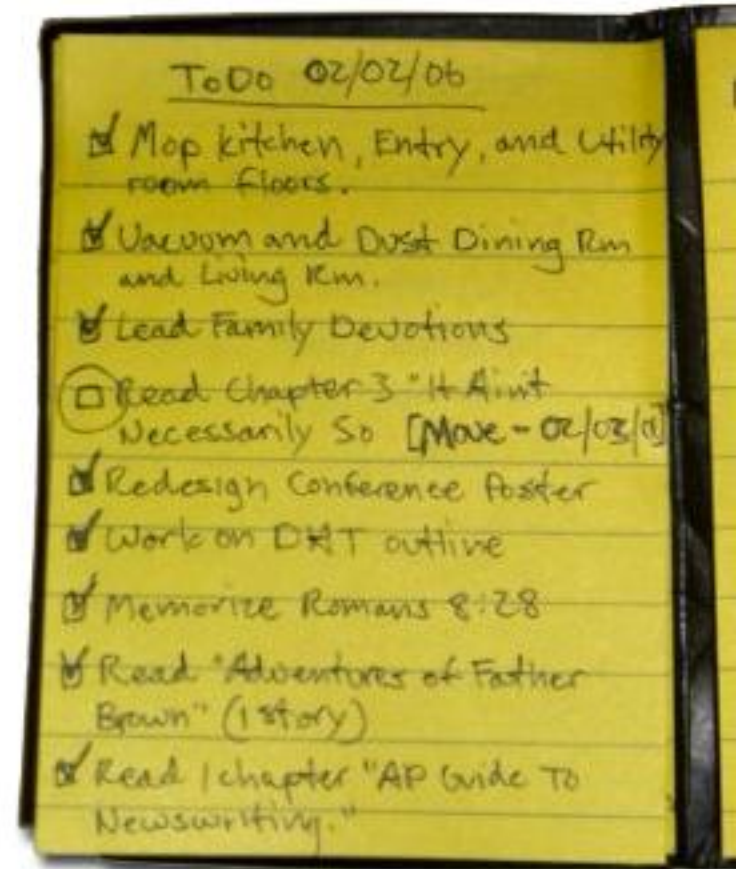 ToDo 02/02/06
☑ Mop kitchen, Entry, and Utility
room floors.
☑ Vacuum and Dust Dining Rm
and Living Rm.
☑ Lead Family Devotions
☐ Read Chapter 3 "It Ain't
Necessarily So [Move - 02/03/
☑ Redesign Conference Poster
☑ Work on outline
☑ Memorize Romans 8:28
☑ Read "Adventures of Father
Brown" (1 story)
☑ Read 1 chapter "AP Guide To
Newswriting."